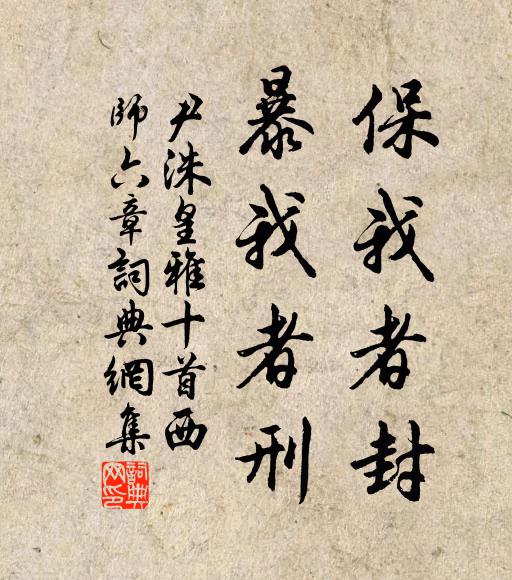 保我者封
暴我者刑
尹洙皇雅十首西
師六章詞典網集
詞典
网印